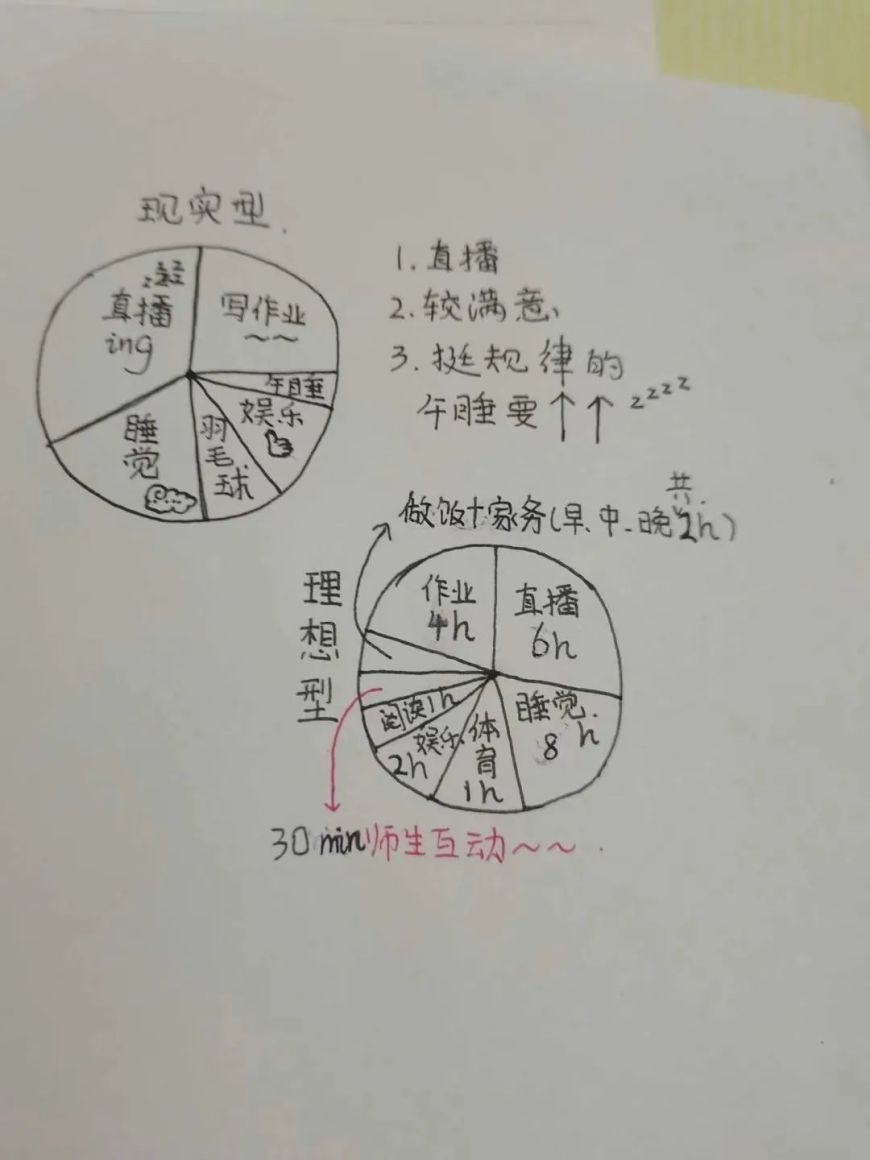 现实型.
zzz
直播
ing
写作业
~~
午睡
娱乐
羽毛球
睡觉
1.直播
2.较满意、
3.挺规律的
午睡要↑↑zzzz
做饭+家务(早、中、晚共2h)
理想型
作业
4h
直播
6h
睡觉.
8h
体育
1h
娱乐
2h
阅读1h
30min师生互动~~.